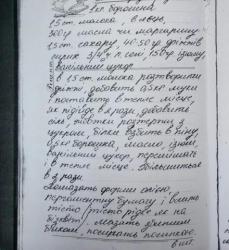 1 кг борошна
1.5 ст. молока, 8 яєць,
300 г масла чи маргарину
1.5 ст. сахару, 40-50 г дріжджів
сирих 3/4 ч. л. солі, 150 гр ізюму,
ванільний цукор.
в 1.5 ст. молока розтворити
дріжжі, добавить 0,5 кг муки
і поставить в тепле місце,
як підійде в 2 рази, добавить
сіль, жовтки розтерти з
цукром, білки взбить в піну,
0,5 кг борошна, масло, ізюм,
ванільний цукор, перемішать
і в тепле місце. Збільшиться
в 2 рази
Помазать форми олією
пергаментну бумагу і влить
тісто (тісто рідке як на
бісквіт), мазать яєчним
білком, посипать посипкою.